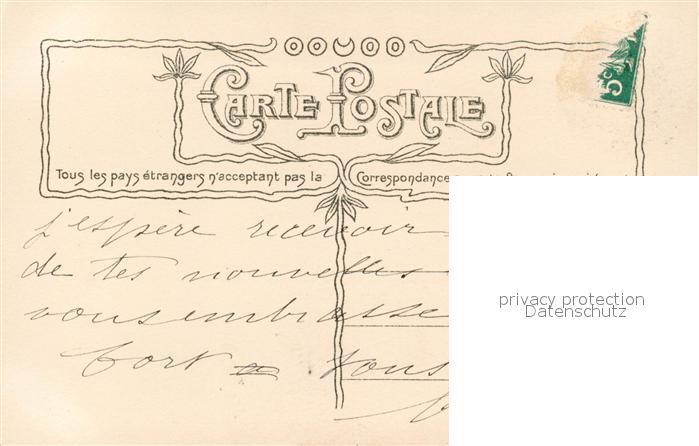 CARTE POSTALE
5c
Tous les pays étrangers n'acceptant pas la Correspondance
j'espère recevoir
de tes nouvelles
vous embrasse
fort a tous
privacy protection
Datenschutz